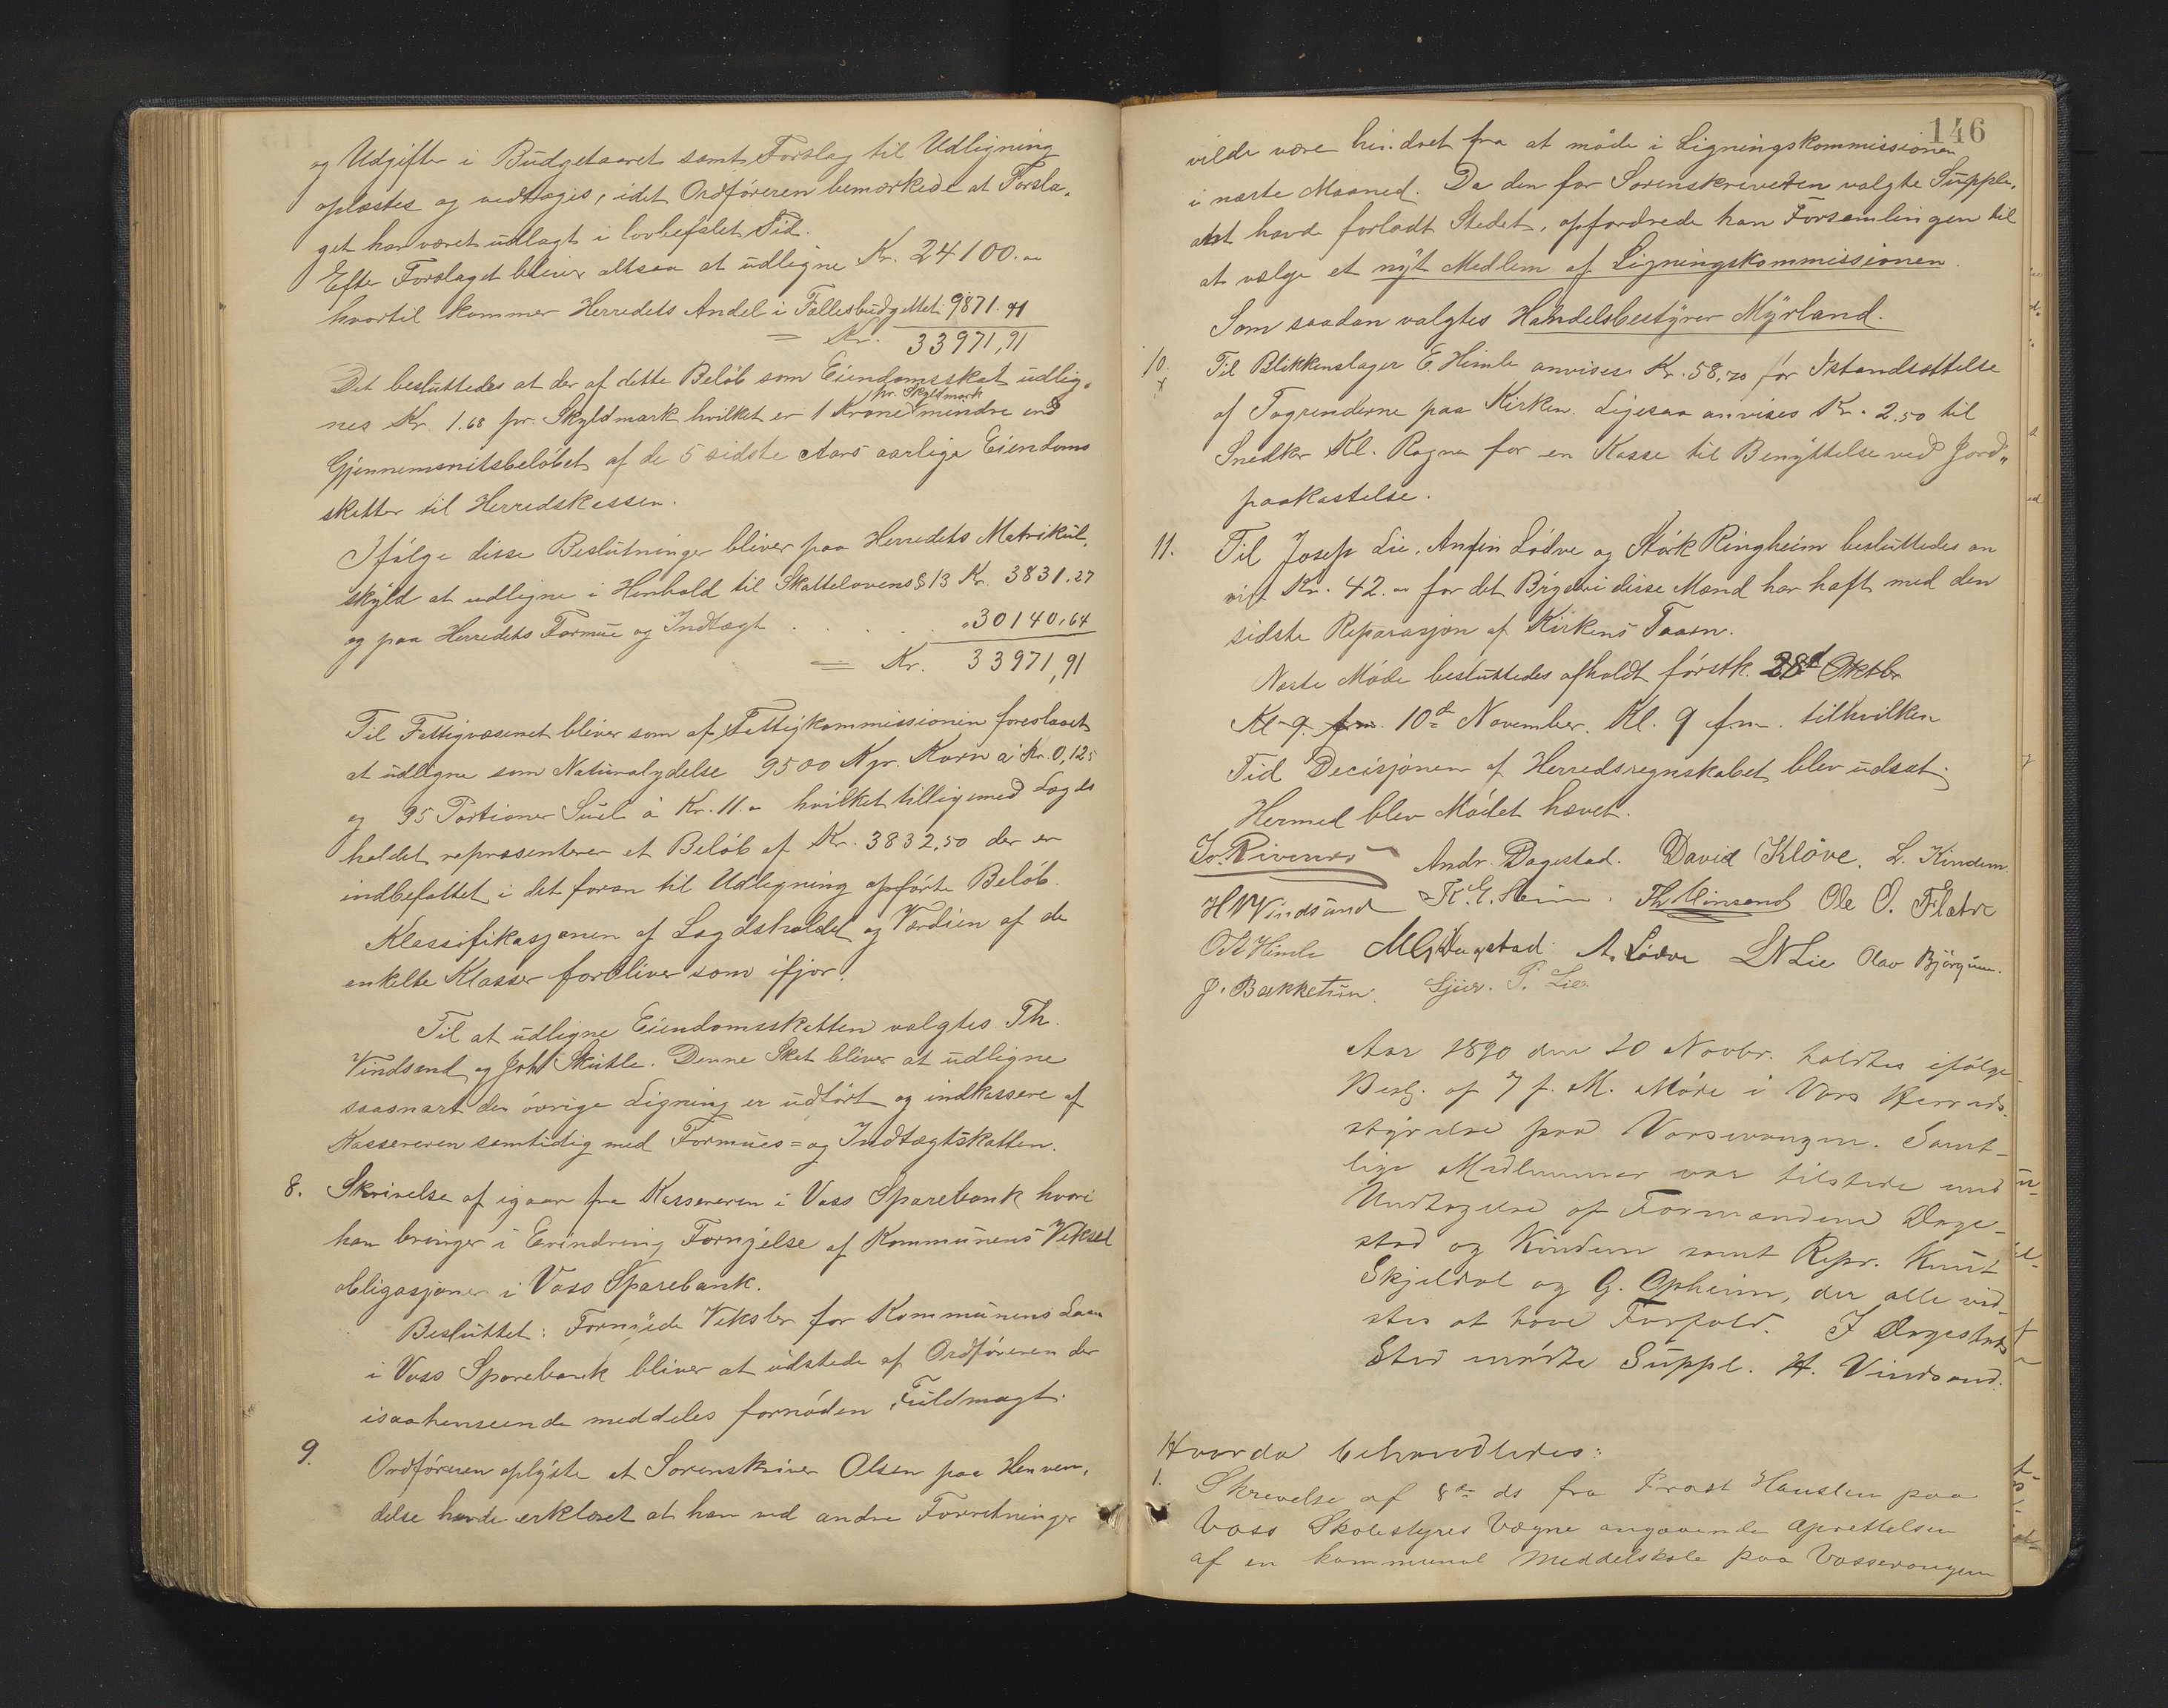 og Udgifter i Budgetaaret samt Forslag til Udligning
oplæstes og vedtoges, idet Ordføreren bemærkede at Forsla-
get har været udlagt i lovbefalet Tid.
Efter Forslaget bliver altsaa at udligne Kr. 24100.00
hvortil kommer Herredets Andel i Fællesbudgettet 9871.91
= Kr. 33971,91
Det besluttedes at der af dette Beløb som Eiendomsskat udlig-
pr. Skyldmark
nes Kr. 1.68 pr. Skyldmark hvilket er 1 Krone mindre end
Gjennemsnitsbeløbet af de 5 sidste Aars aarlige Eiendoms
skatter til Herredskassen.
Ifølge disse Beslutninger bliver paa Herredets Matrikul-
skyld at udligne i Henhold til Skattelovens § 13 Kr. 3831.27
og paa Herredets Formue og Indtægt . . . . " 30140,64
= Kr. 33971,91
Til Fattigvæsenet bliver som af Fattigkommissionen foreslaaet
at udligne som Naturalydelse 9500 Kgr. Korn à Kr. 0,125
og 95 Portioner Suel à Kr. 11.00 hvilket tilligemed Lægds
holdet repræsenterer et Beløb af Kr. 3832,50 der er
indbefattet i det foran til Udligning opførte Beløb.
Klassifikasjonen af Lægdsholdet og Værdien af de
enkelte Klasser forbliver som ifjor.
Til at udligne Eiendomsskatten valgtes Th.
Vindsand og Joh Skutle. Denne Skat bliver at udligne
saasnart den øvrige Ligning er udført og indkassere af
Kassereren samtidig med Formues= og Indtægtskatten.
8. Skrivelse af igaar fra Kassereren i Voss Sparebank hvori
han bringer i Erindring Fornyelse af Kommunens Veksel
obligasjoner i Voss Sparebank.
Besluttet: Fornyede Veksler for Kommunens Laan
i Voss Sparebank bliver at udstede af Ordføreren der
isaahenseende meddeles fornøden Fuldmagt.
9. Ordføreren oplyste at Sorenskriver Olsen paa Henven-
delse havde erklæret at han ved andre Forretninger
146
vilde være hindret fra at møde i Ligningskommissionen
i næste Maaned. Da den for Sorenskriveren valgte Supple-
ant havde forladt Stedet, opfordrede han Forsamlingen til
at vælge et nyt Medlem af Ligningskommissionen.
Som saadan valgtes Handelsbestyrer Myrland.
10. Til Blikkenslager E. Himle anvises Kr. 58,70 for Istandsættelse
x
af Tagrenderne paa Kirken. Ligesaa anvises Kr. 2,50 til
Snedker Kl. Rogne for en Kasse til Benyttelse ved Jord"
paakastelse.
11. Til Josef Lie, Anfin Lødve og Størk Ringheim besluttedes an
vist Kr. 42.00 for det Bryderi disse Mænd har haft med den
sidste Reparasjon af Kirkens Taarn.
Næste Møde besluttedes afholdt førstk. 28d Oktbr
Kl. 9 fm. 10de November. Kl. 9 f.m. tilhvilken
Tid Decisjonen af Herredsregnskabet blev udsat.
Hermed blev Mødet hævet.
Andr. Dagestad. David Kløve. L. Kindem
H Vindsand Th Vinsand Ole O. Flatre
O Himle M G Dagestad A. Lødve L N Lie Olav Bjørgum.
J. Bakketun. Sjur. P. Lie
Aar 1890 den 10 Novbr. holdtes ifølge
Besl. af 7 f. M. Møde i Vors Herreds-
styrelse paa Vorsevangen. Samt-
lige Medlemmer var tilstede med
Undtagelse af Formændene Dage-
stad og Kindem samt Repr. Knut
Skjeldal og G. Opheim, der alle vid-
stes at have Forfald. I Dagestads
Sted mødte Suppl. H. Vindsand.
Hvorda behandledes:
1. Skrivelse af 8de ds fra Prost Hauslen paa
Voss Skolestyres Vegne angaaende Oprettelsen
af en kommunal Middelskole paa Vossevangen